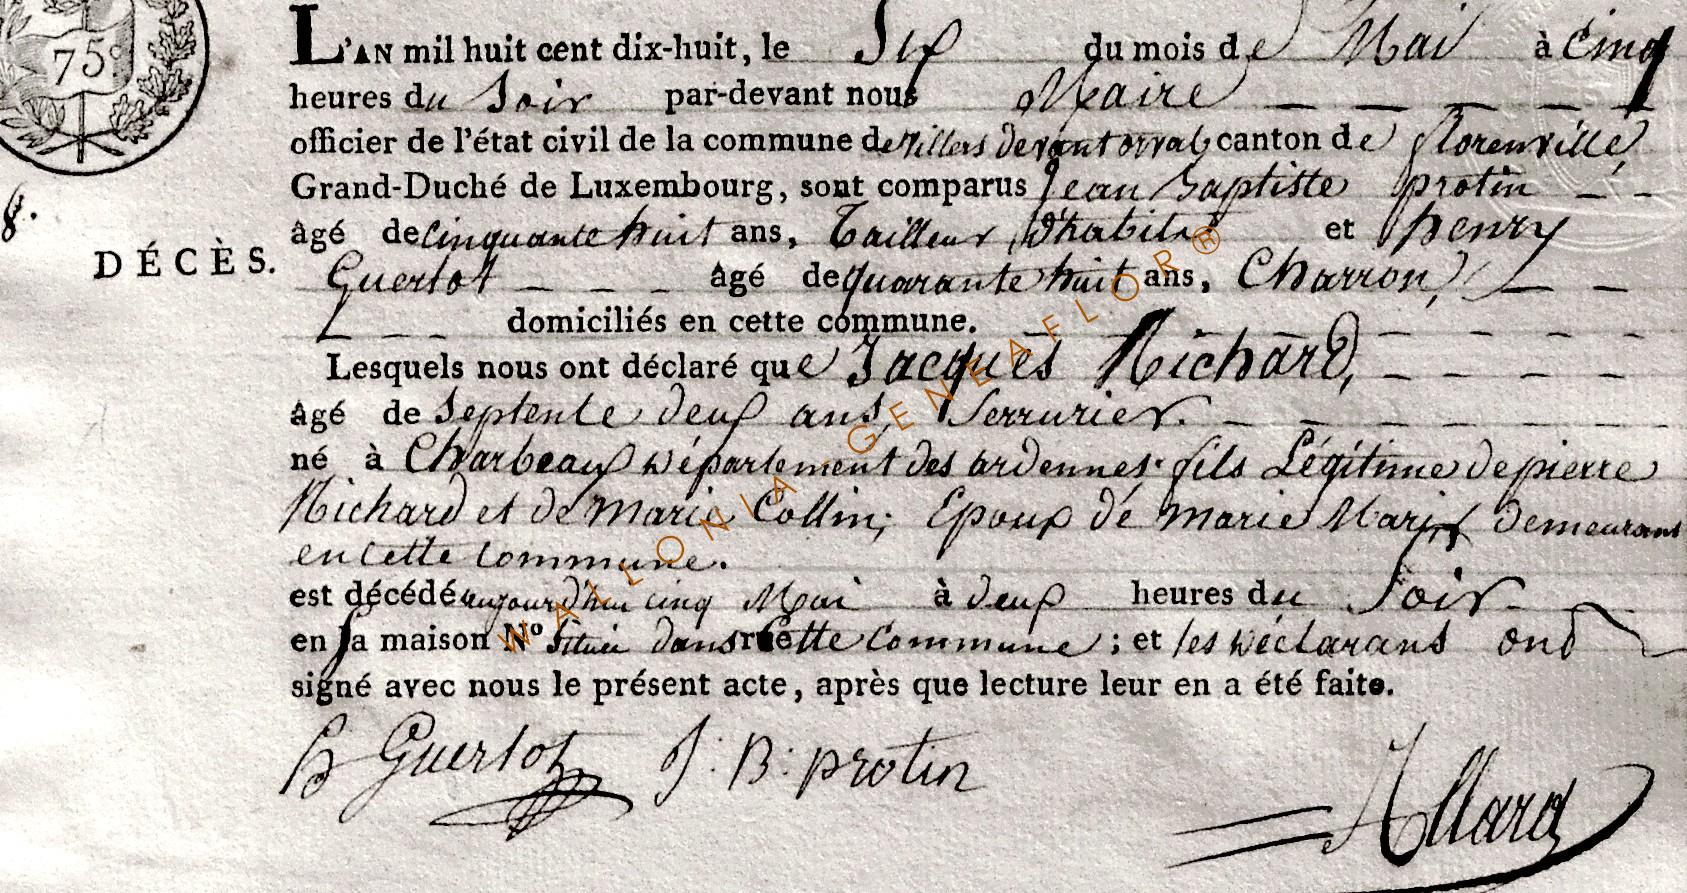 75c
L'AN mil huit cent dix-huit, le Six du mois de Mai à cinq
heures du Soir par-devant nous Maire
officier de l'état civil de la commune de Villers devant orval canton de florenville
Grand-Duché de Luxembourg, sont comparus Jean Baptiste protin
8.
âgé de cinquante huit ans, Tailleur D'habits et henry
DÉCÈS.
Guerlot âgé de quarante huit ans, Charron,
domiciliés en cette commune.
Lesquels nous ont déclaré que Jacques Richard,
âgé de Septente deux ans, Serrurier.
né à Charbeaux Département des ardennes fils Légitime de pierre
Richard et de Marie Collin; Epoux de Marie demeurant
en cette commune.
est décédé aujourd'hui cinq Mai à deux heures du Soir
en sa maison No Située dans rue Cette Commune; et les Déclarans ont
signé avec nous le présent acte, après que lecture leur en a été faite.
h Guerlot J: B: protin
Allard
WALLONIA GENEAFLOR®